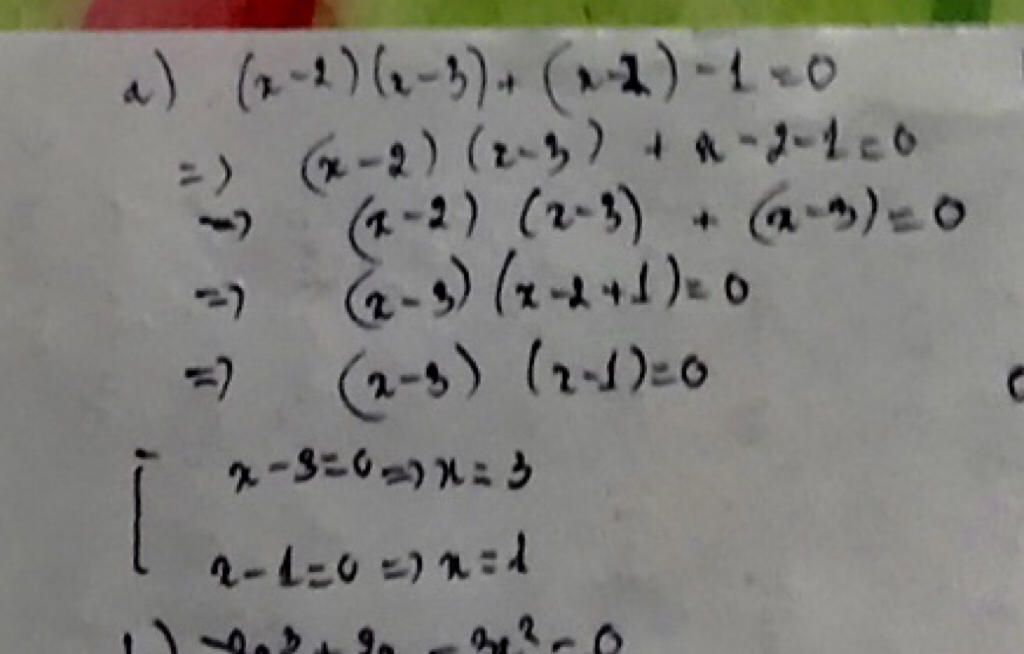 a) (x-2)(x-3)+(x-2)-1=0
=> (x-2)(x-3) + x-2-1=0
=> (x-2) (x-3) + (x-3)=0
=> (x-3)(x-2+1)=0
=> (x-3) (x-1)=0
[ x-3=0 => x=3
x-1=0 => x=1